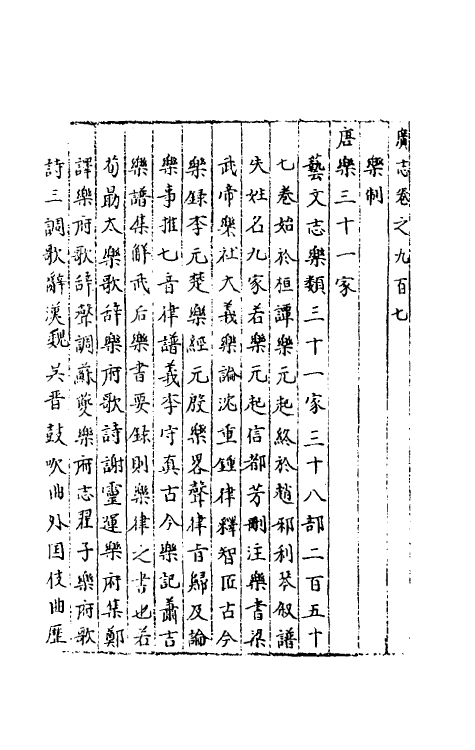 廣志卷之九百七
樂制
唐樂三十一家
藝文志樂類三十一家三十八部二百五十
七卷始於桓譚樂元起終於趙邪利琴叙譜
失姓名九家若樂元起信都芳刪注樂書梁
武帝樂社大義樂論沈重鍾律釋智匠古今
樂錄李元楚樂經元殷樂畧聲律肯歸及論
樂事推七音律譜義李守真古今樂記蕭吉
樂譜集解武后樂書要錄則樂律之書也若
荀勗太樂歌辞樂府歌詩謝靈運樂府集鄭
譯樂府歌辞聲調蘇夔樂府志翟子樂府歌
詩三調歌辭漢魏吳晋鼓吹曲外囯伎曲歷